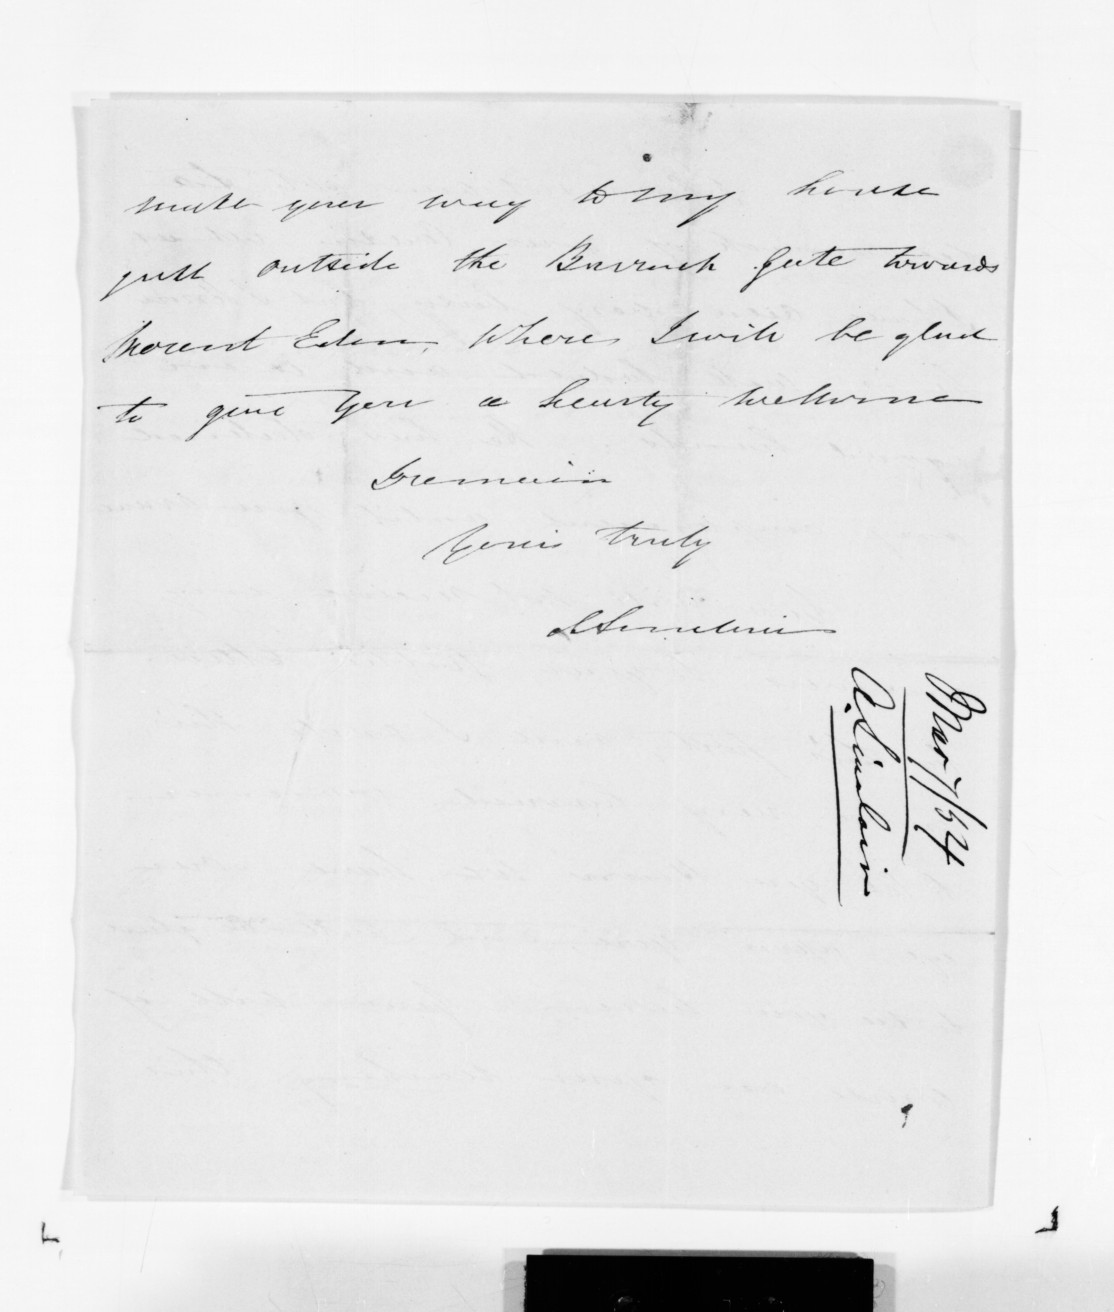 make your way to my house
just outside the Barrack Gate towards
Mount Eden, Where I will be glad
to give you a hearty welcome
I remain
Yours truly
A Sinclair
Mar 7/54
A. Sinclair